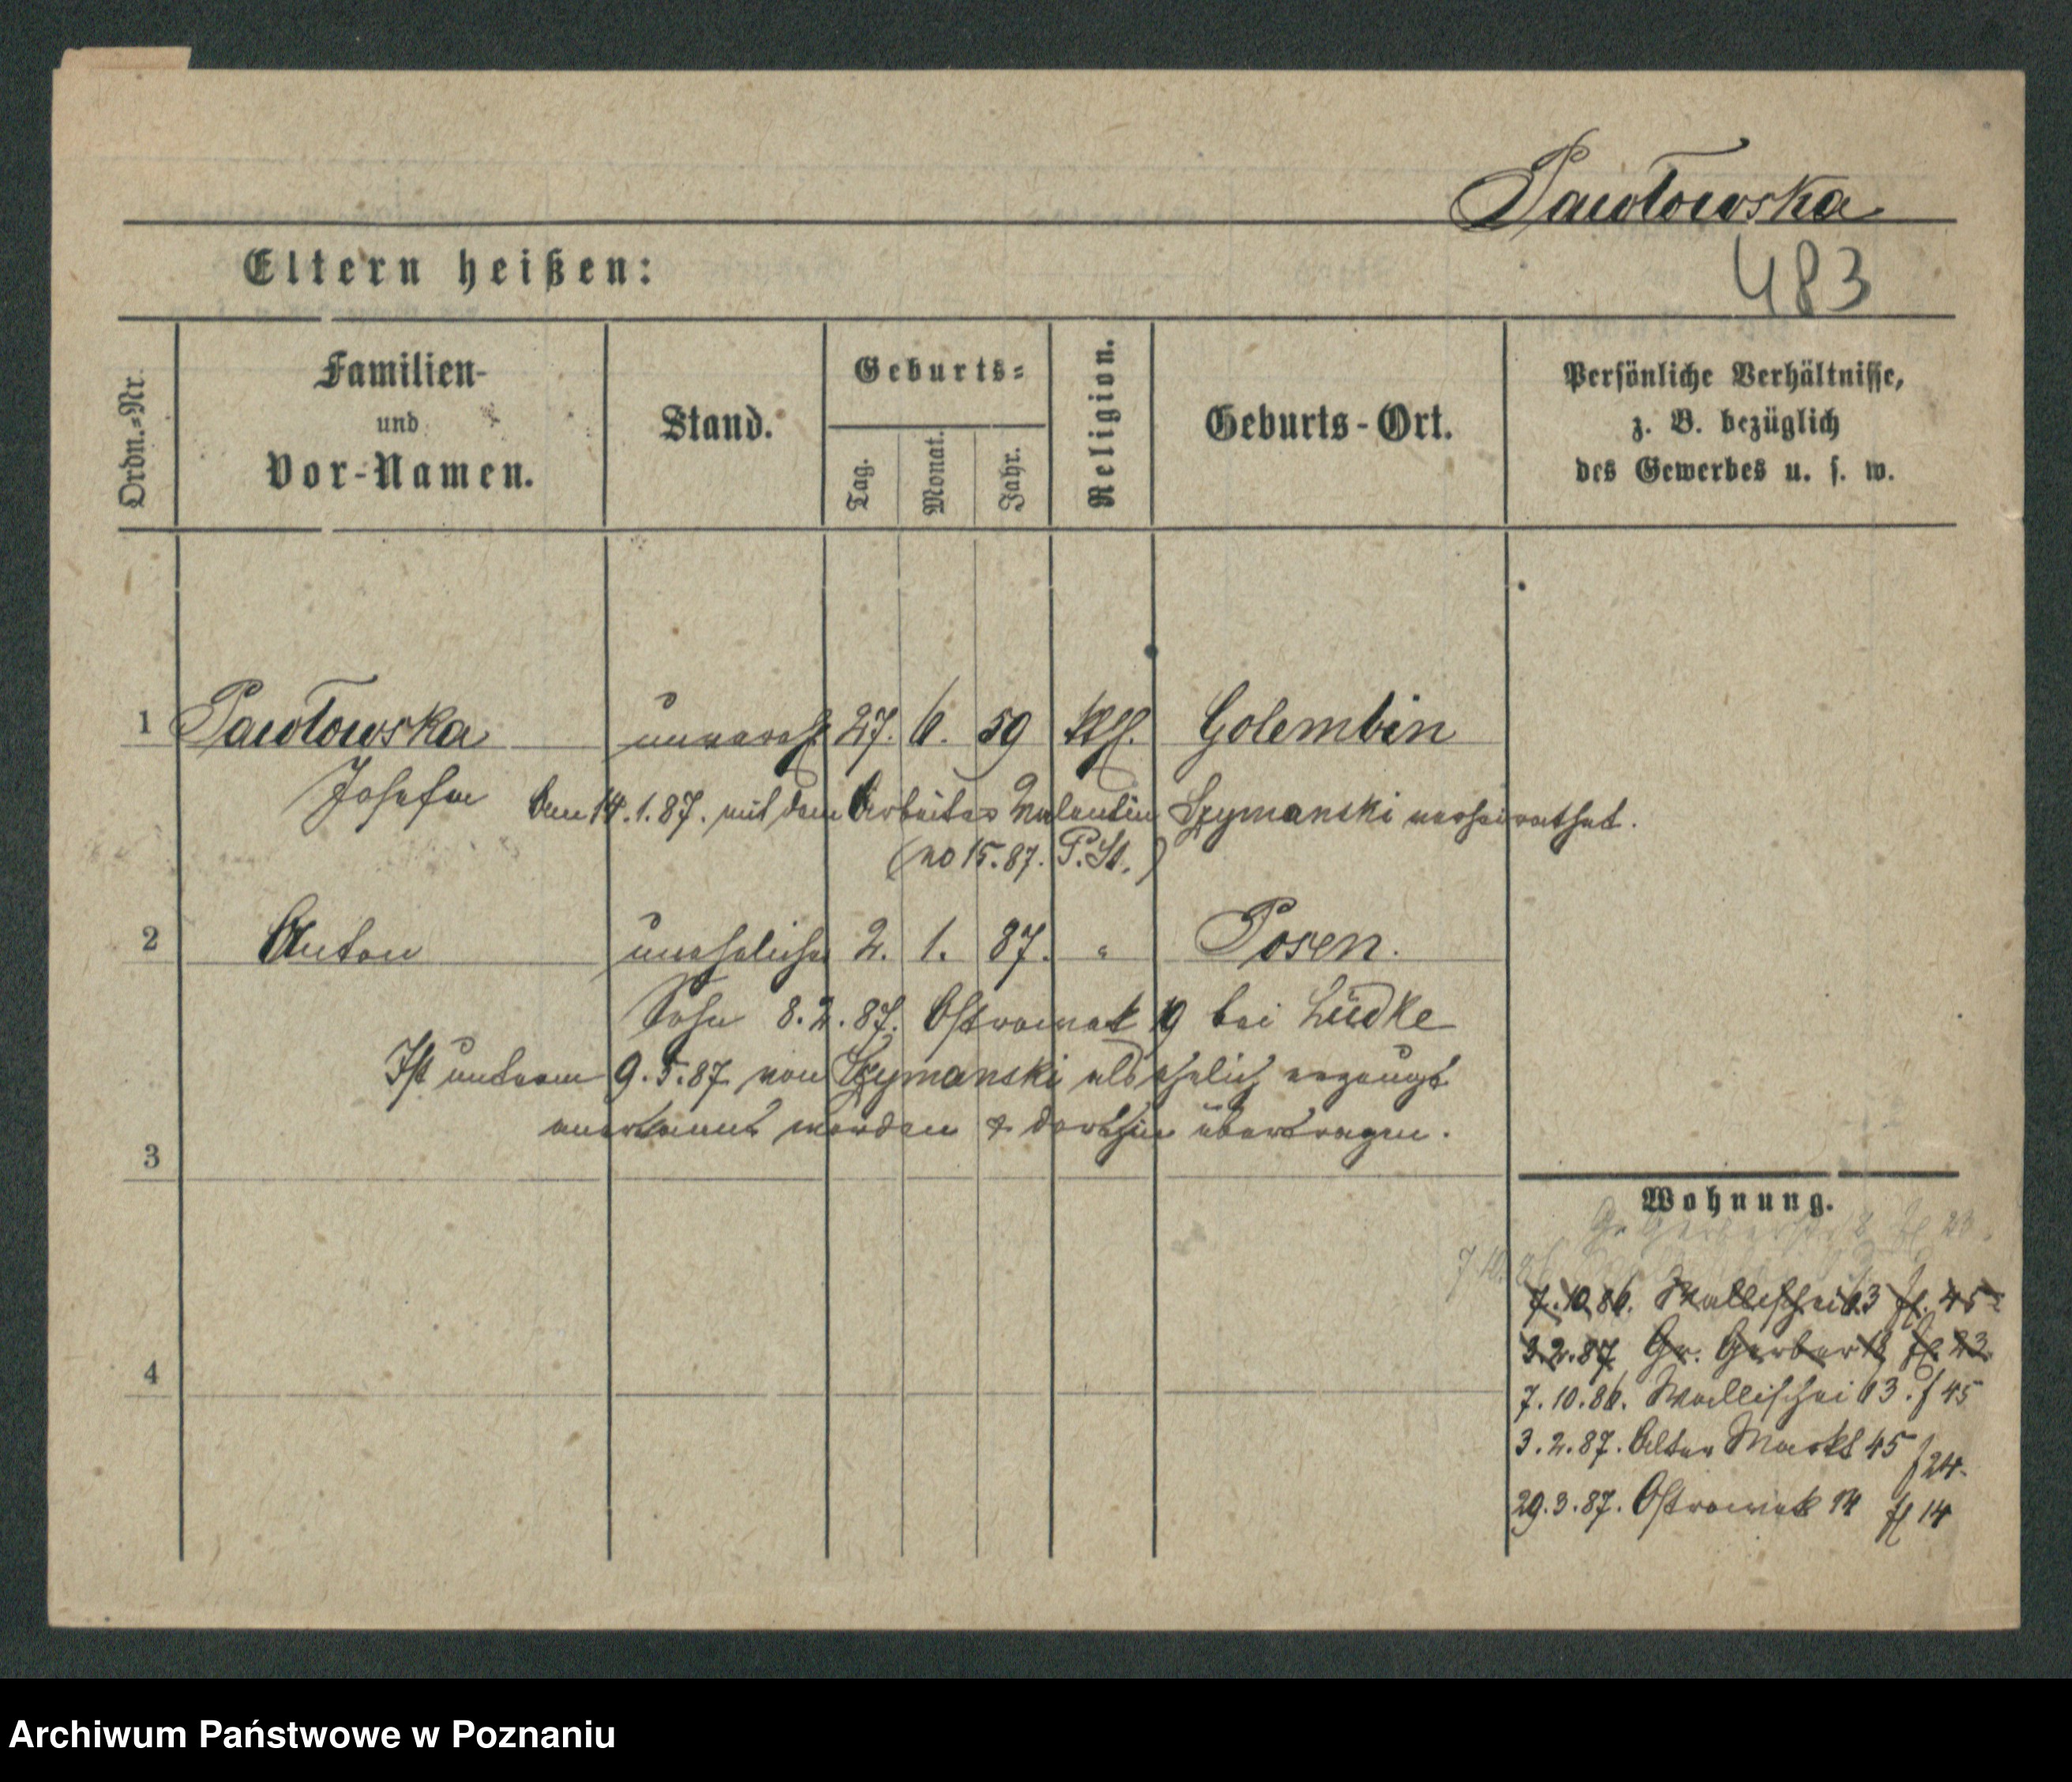 Pawłowska
483
Eltern heißen:
Ordn.-Nr.
Familien-
und
Vor-Namen.
Stand.
Geburts-
Tag.
Monat.
Jahr.
Religion.
Geburts-Ort.
Persönliche Verhältnisse,
z. B. bezüglich
des Gewerbes u. s. w.
1 Pawłowska unvereh 27. 6. 59 Kth. Golembin
Josefa Am 14.1.87. mit dem Arbeiter Valentin Szymanski verheirathet.
(No 15.87. P.St.)
2 Anton uneheliche 2. 1. 87. " Posen.
Sohn 8.2.87. Ostrowek 19 bei Lüdke
Ist unterm 9.5.87 von Szymanski als ehelich erzeugt
anerkannt worden & dorthin übertragen.
3
Wohnung.
Gr Gerberstr 18 bei 23.
7.10.86. Wallischei 63 fl. 45
3.2.87. Gr. Gerber 18 fl. 23
4
7.10.86. Wallischei 63. f 45
3.2.87. Alter Markt 45 f 24.
29.3.87. Ostrowek 14 fl 14
Archiwum Państwowe w Poznaniu